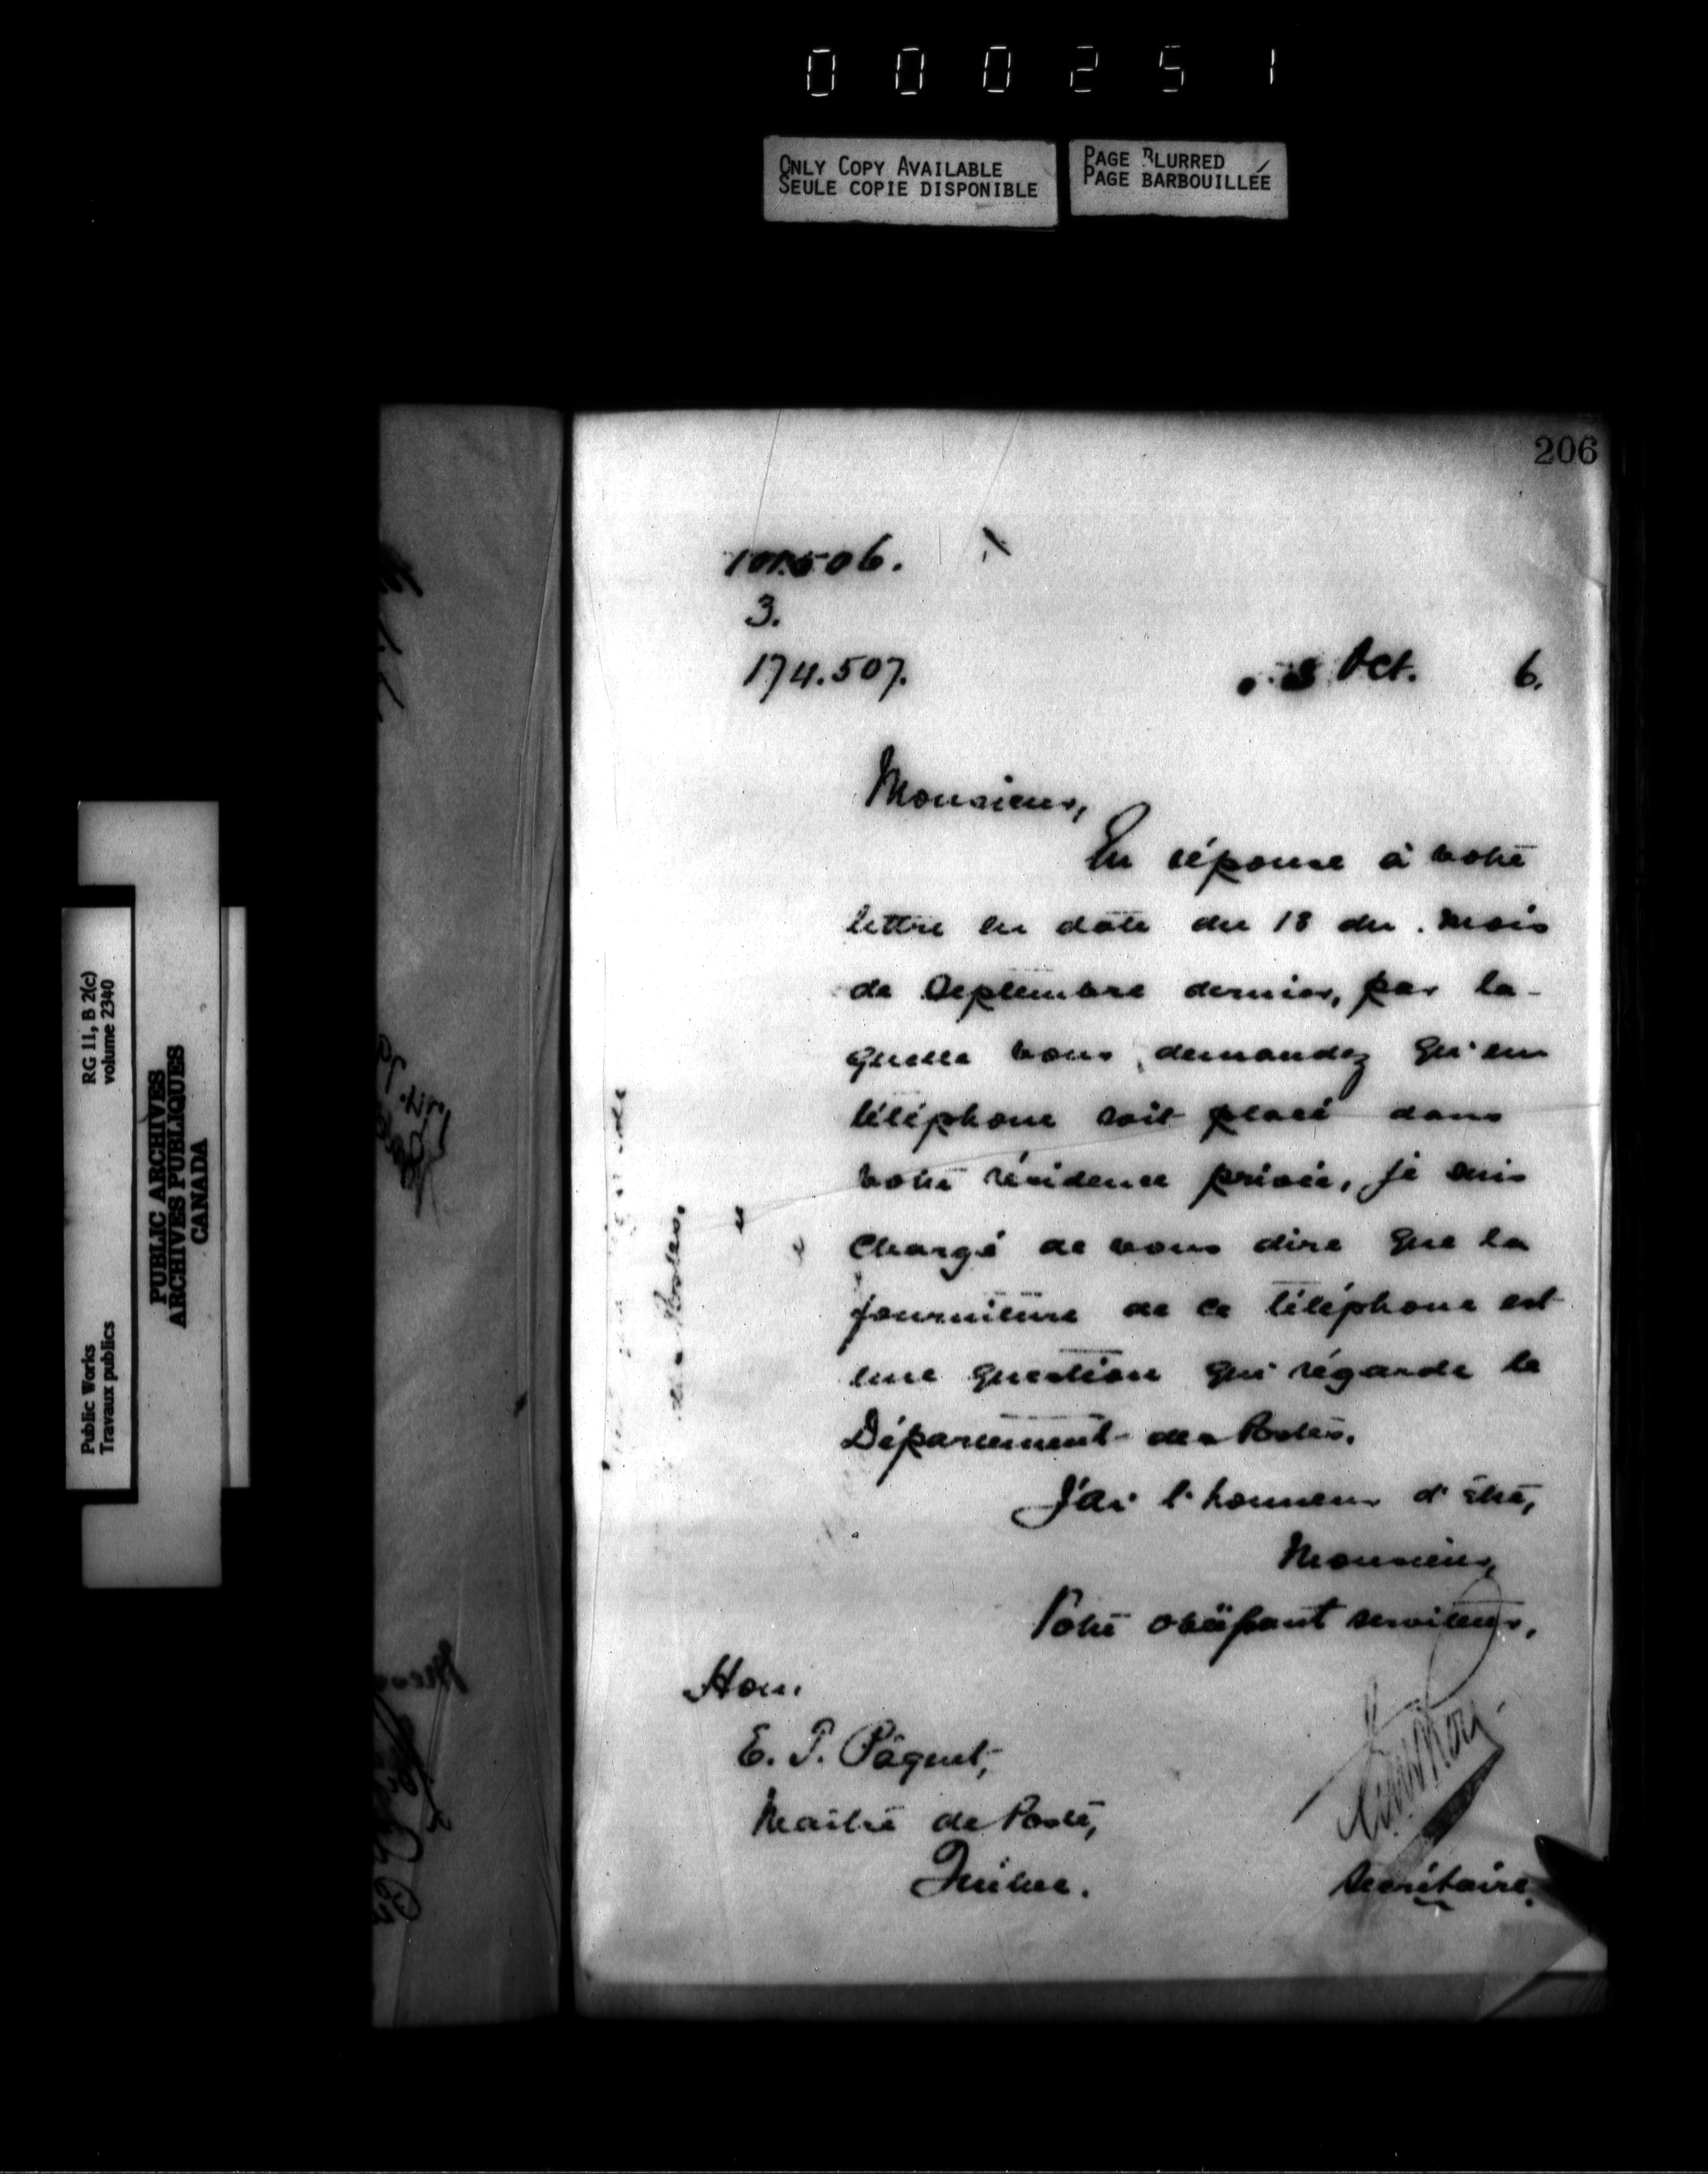 000251
ONLY COPY AVAILABLE
SEULE COPIE DISPONIBLE
PAGE BLURRED
PAGE BARBOUILLÉE
206
3.
174.507.
Oct. 6.
Monsieur,
En réponse à votre
lettre en date du 18 du mois
de Septembre dernier, par la-
quelle vous demandez qu'un
téléphone soit placé dans
votre résidence privée, je suis
chargé de vous dire que la
fourniture de ce téléphone est
une question qui regarde le
Département des Postes.
J'ai l'honneur d'être,
Monsieur,
Votre obéissant serviteur,
Hon.
E. P. Pâquet,
Maître de Poste,
Québec.
Secrétaire.
RG 11, B 2(c)
volume 2340
Public Works
Travaux publics
PUBLIC ARCHIVES
ARCHIVES PUBLIQUES
CANADA